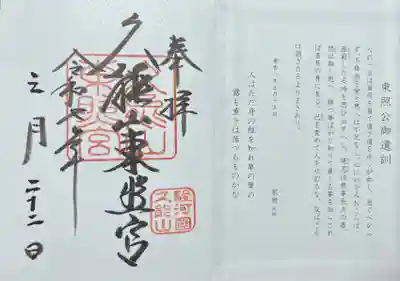 東照公御遺訓
人の一生は重荷を負て遠き道を行くが如し、急ぐべから
ず不自由を常と思へば不足なし、心にのぞみおこらば
困窮したる時を思ひ出すべし、堪忍は無事長久の基
怒は敵と思へ、勝つ事ばかり知りて負くる事を知らざれ
ば害其の身に至る、己を責めて人を責むるな、及ばざる
は過ぎたるよりまされり
人はただ身の程を知れ草の葉の
露も重きは落つるものかな
奉拝
久能山東照宮
駿河國
久能山
令和七年
月 二十二日